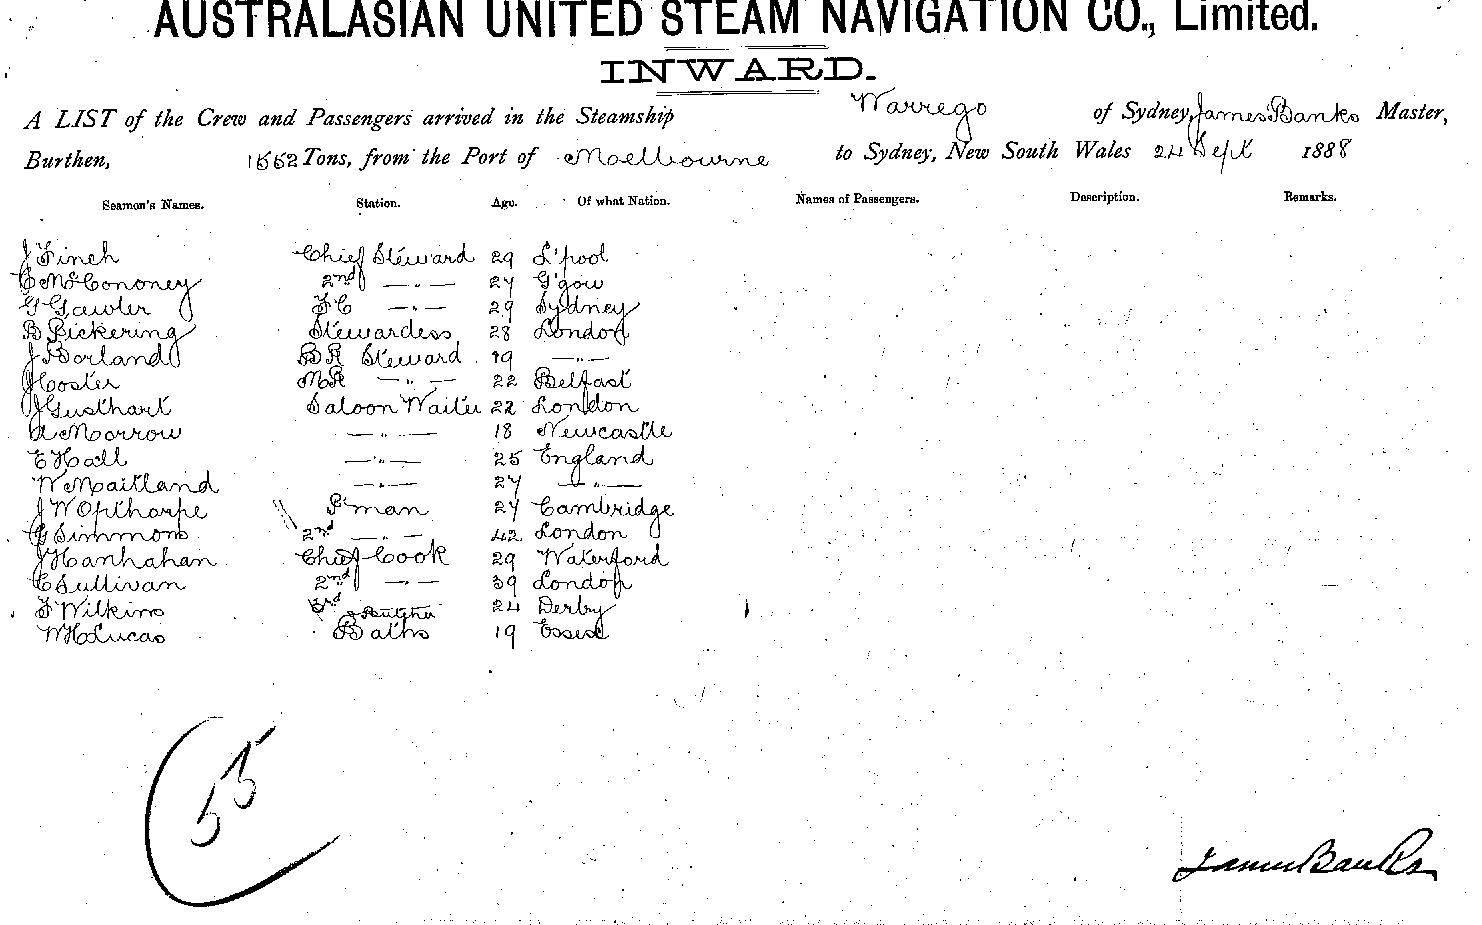 AUSTRALASIAN UNITED STEAM NAVIGATION CO., Limited.
INWARD.
A LIST of the Crew and Passengers arrived in the Steamship Warrego of Sydney, James Banks Master,
Burthen, 1552 Tons, from the Port of Moelbourne to Sydney, New South Wales 24 Sept 1888
Seamen's Names. Station. Age. Of what Nation. Names of Passengers. Description. Remarks.
J Finch Chief Steward 29 L'pool
C McCononey 2nd —„— 27 G'gow
G Gawler F C —„— 29 Sydney
B Pickering Stewardess 28 London
J Borland BR Steward 19 —„—
J Coster MR —„— 22 Belfast
J Gusthart Saloon Waiter 22 London
A Morrow —„— 18 Newcastle
E Hall —„— 25 England
W Maitland —„— 27 —„—
J W Opthorpe P'man 27 Cambridge
G Simmons 2nd —„— 42 London
J Hanhahan Chief Cook 29 Waterford
C Sullivan 2nd —„— 39 London
F Wilkins 3rd 24 Derby
W H Lucas Baths 19 Essex
55
James Banks